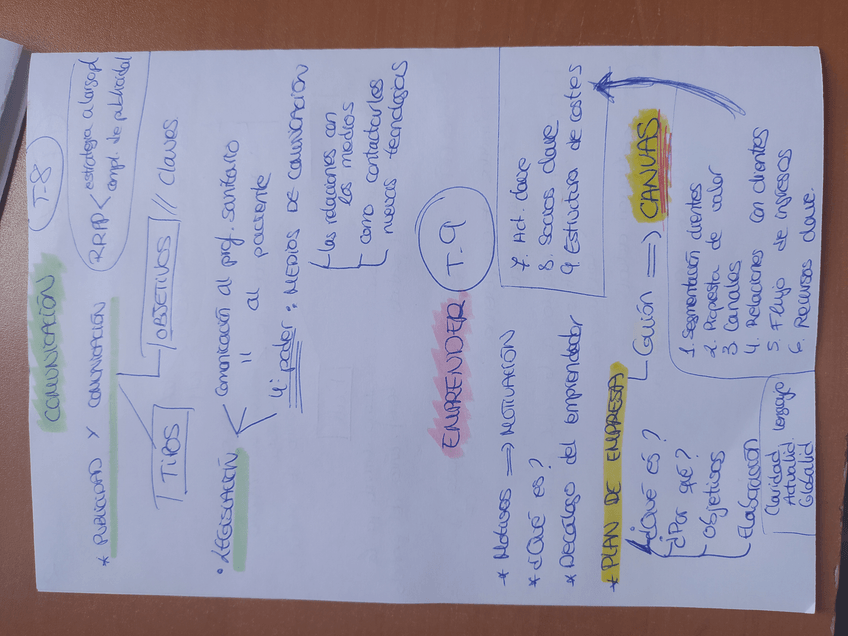 COMUNICACIÓN T-8
* PUBLICIDAD Y COMUNICACIÓN
RRPP < estrategia a largo pl
ampl. de publicidad
TIPOS
OBJETIVOS // Claves
• LEGISLACIÓN < Comunicación al prof. sanitario
" al paciente
4º poder: MEDIOS DE COMUNICACIÓN
las relaciones con
los medios
como contactarles
nuevas tecnologías
EMPRENDER T-9
* Motivos => MOTIVACIÓN
* ¿Qué es?
* Decálogo del emprendedor
* PLAN DE EMPRESA
¿Qué es?
¿Por qué?
Objetivos
Elaboración
Claridad Lenguaje
Actualid.
Globalid
Guión => CANVAS
1. Segmentación clientes
2. Propuesta de valor
3 Canales
4. Relaciones con clientes
5 Flujo de ingresos
6. Recursos clave.
7. Act. clave
8. Socios clave
9. Estructura de costes